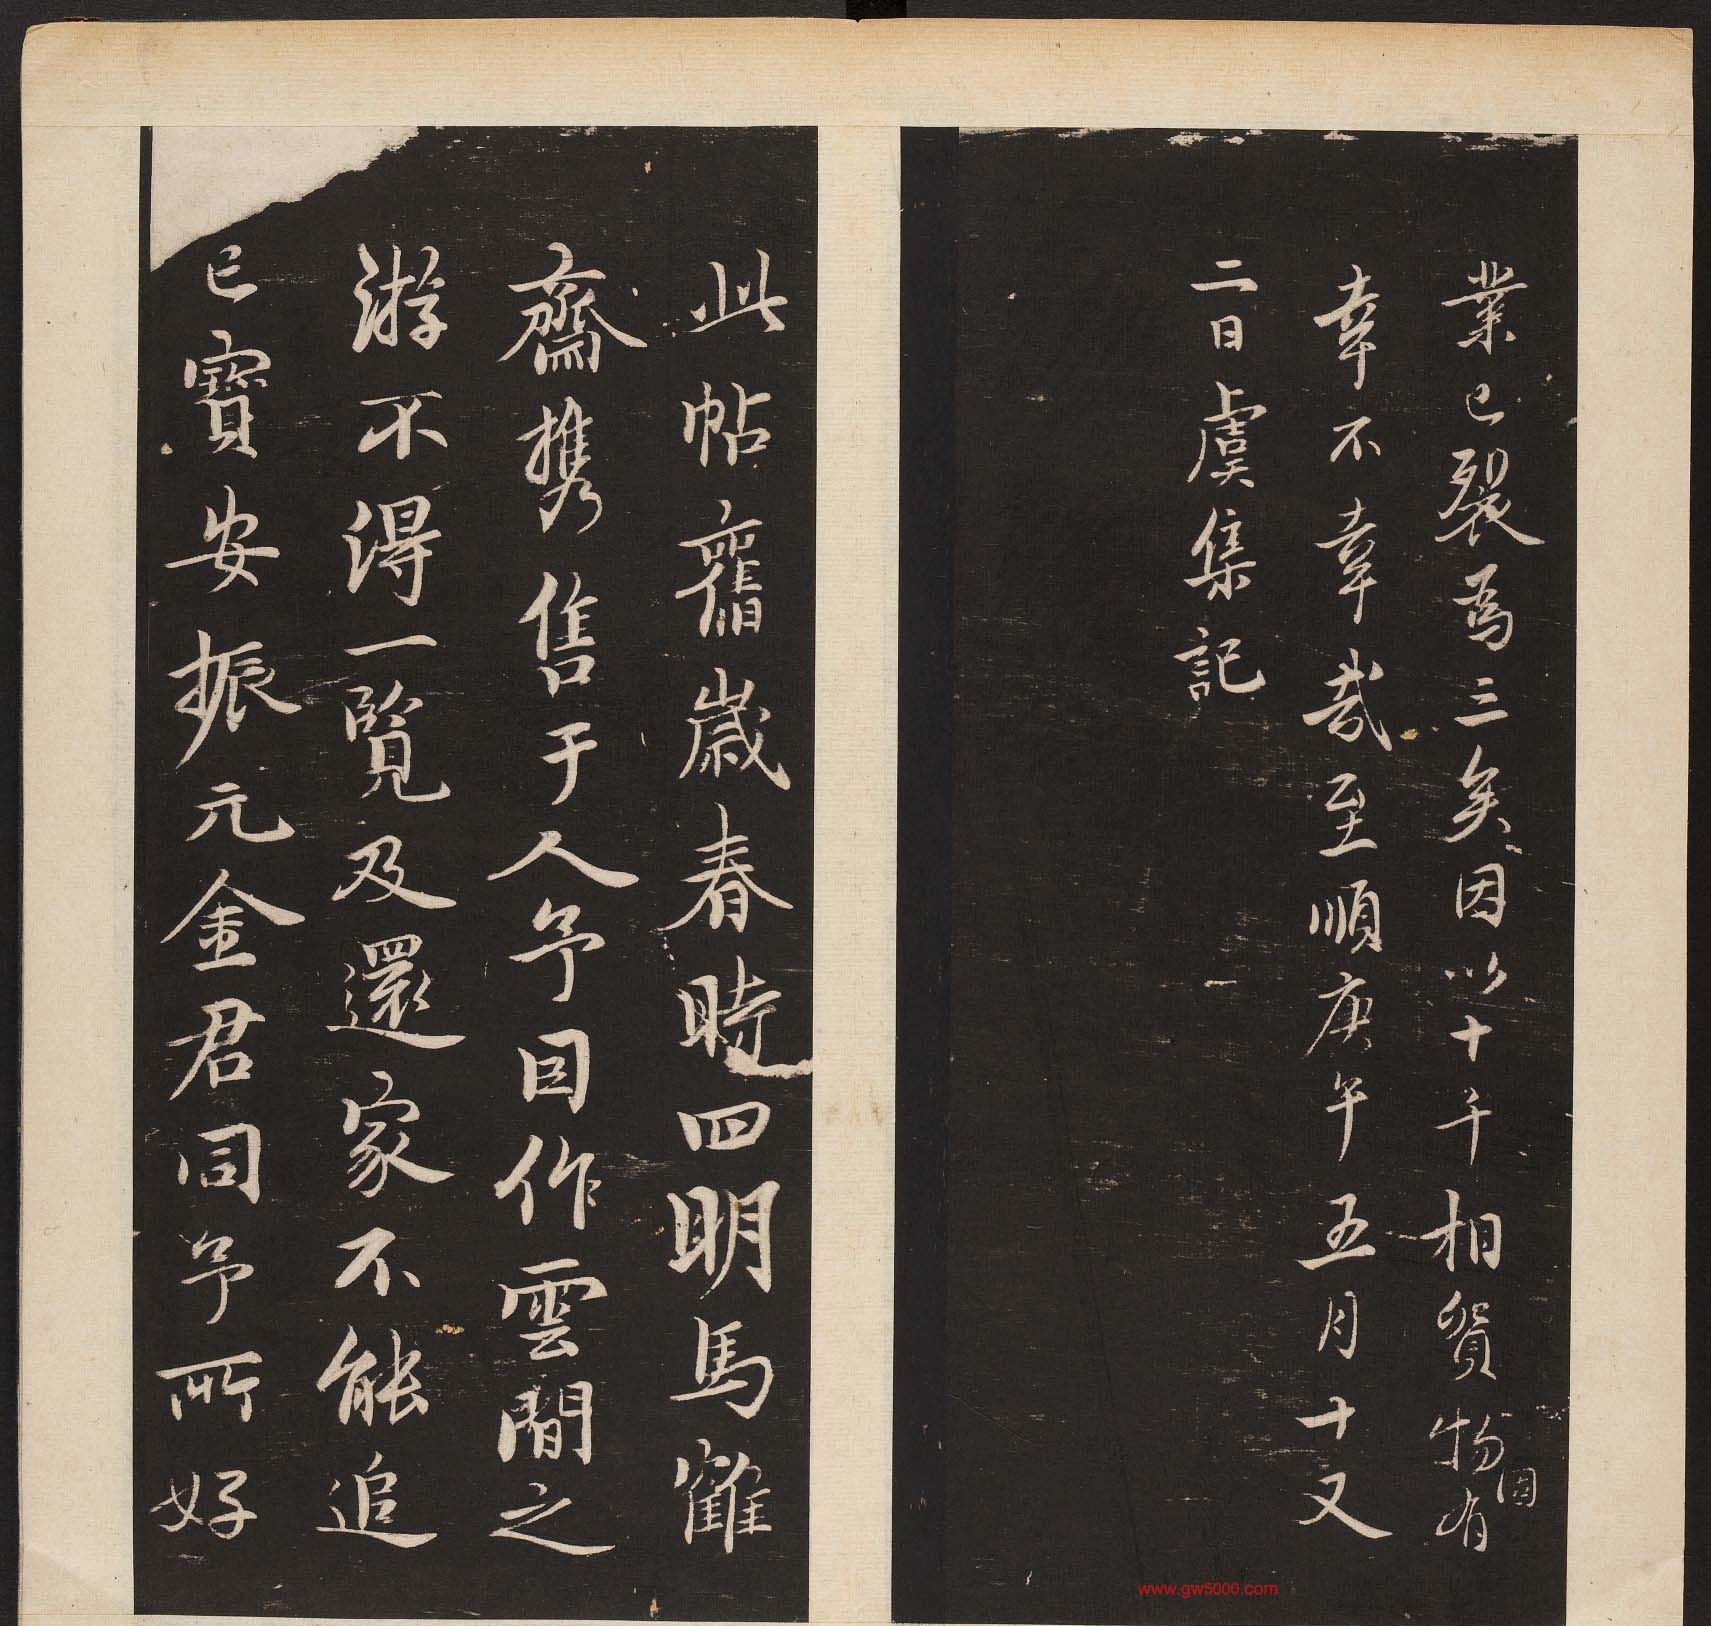 業已裂爲三矣因以十千相贺物固有
幸不幸哉至順庚午五月十又
二日虞集記
此帖舊歲春時四明馬鶴
齋攜售于人予因作雲間之
游不得一覽及還家不能追
已寶安振元金君同予所好
www.gw5000.com